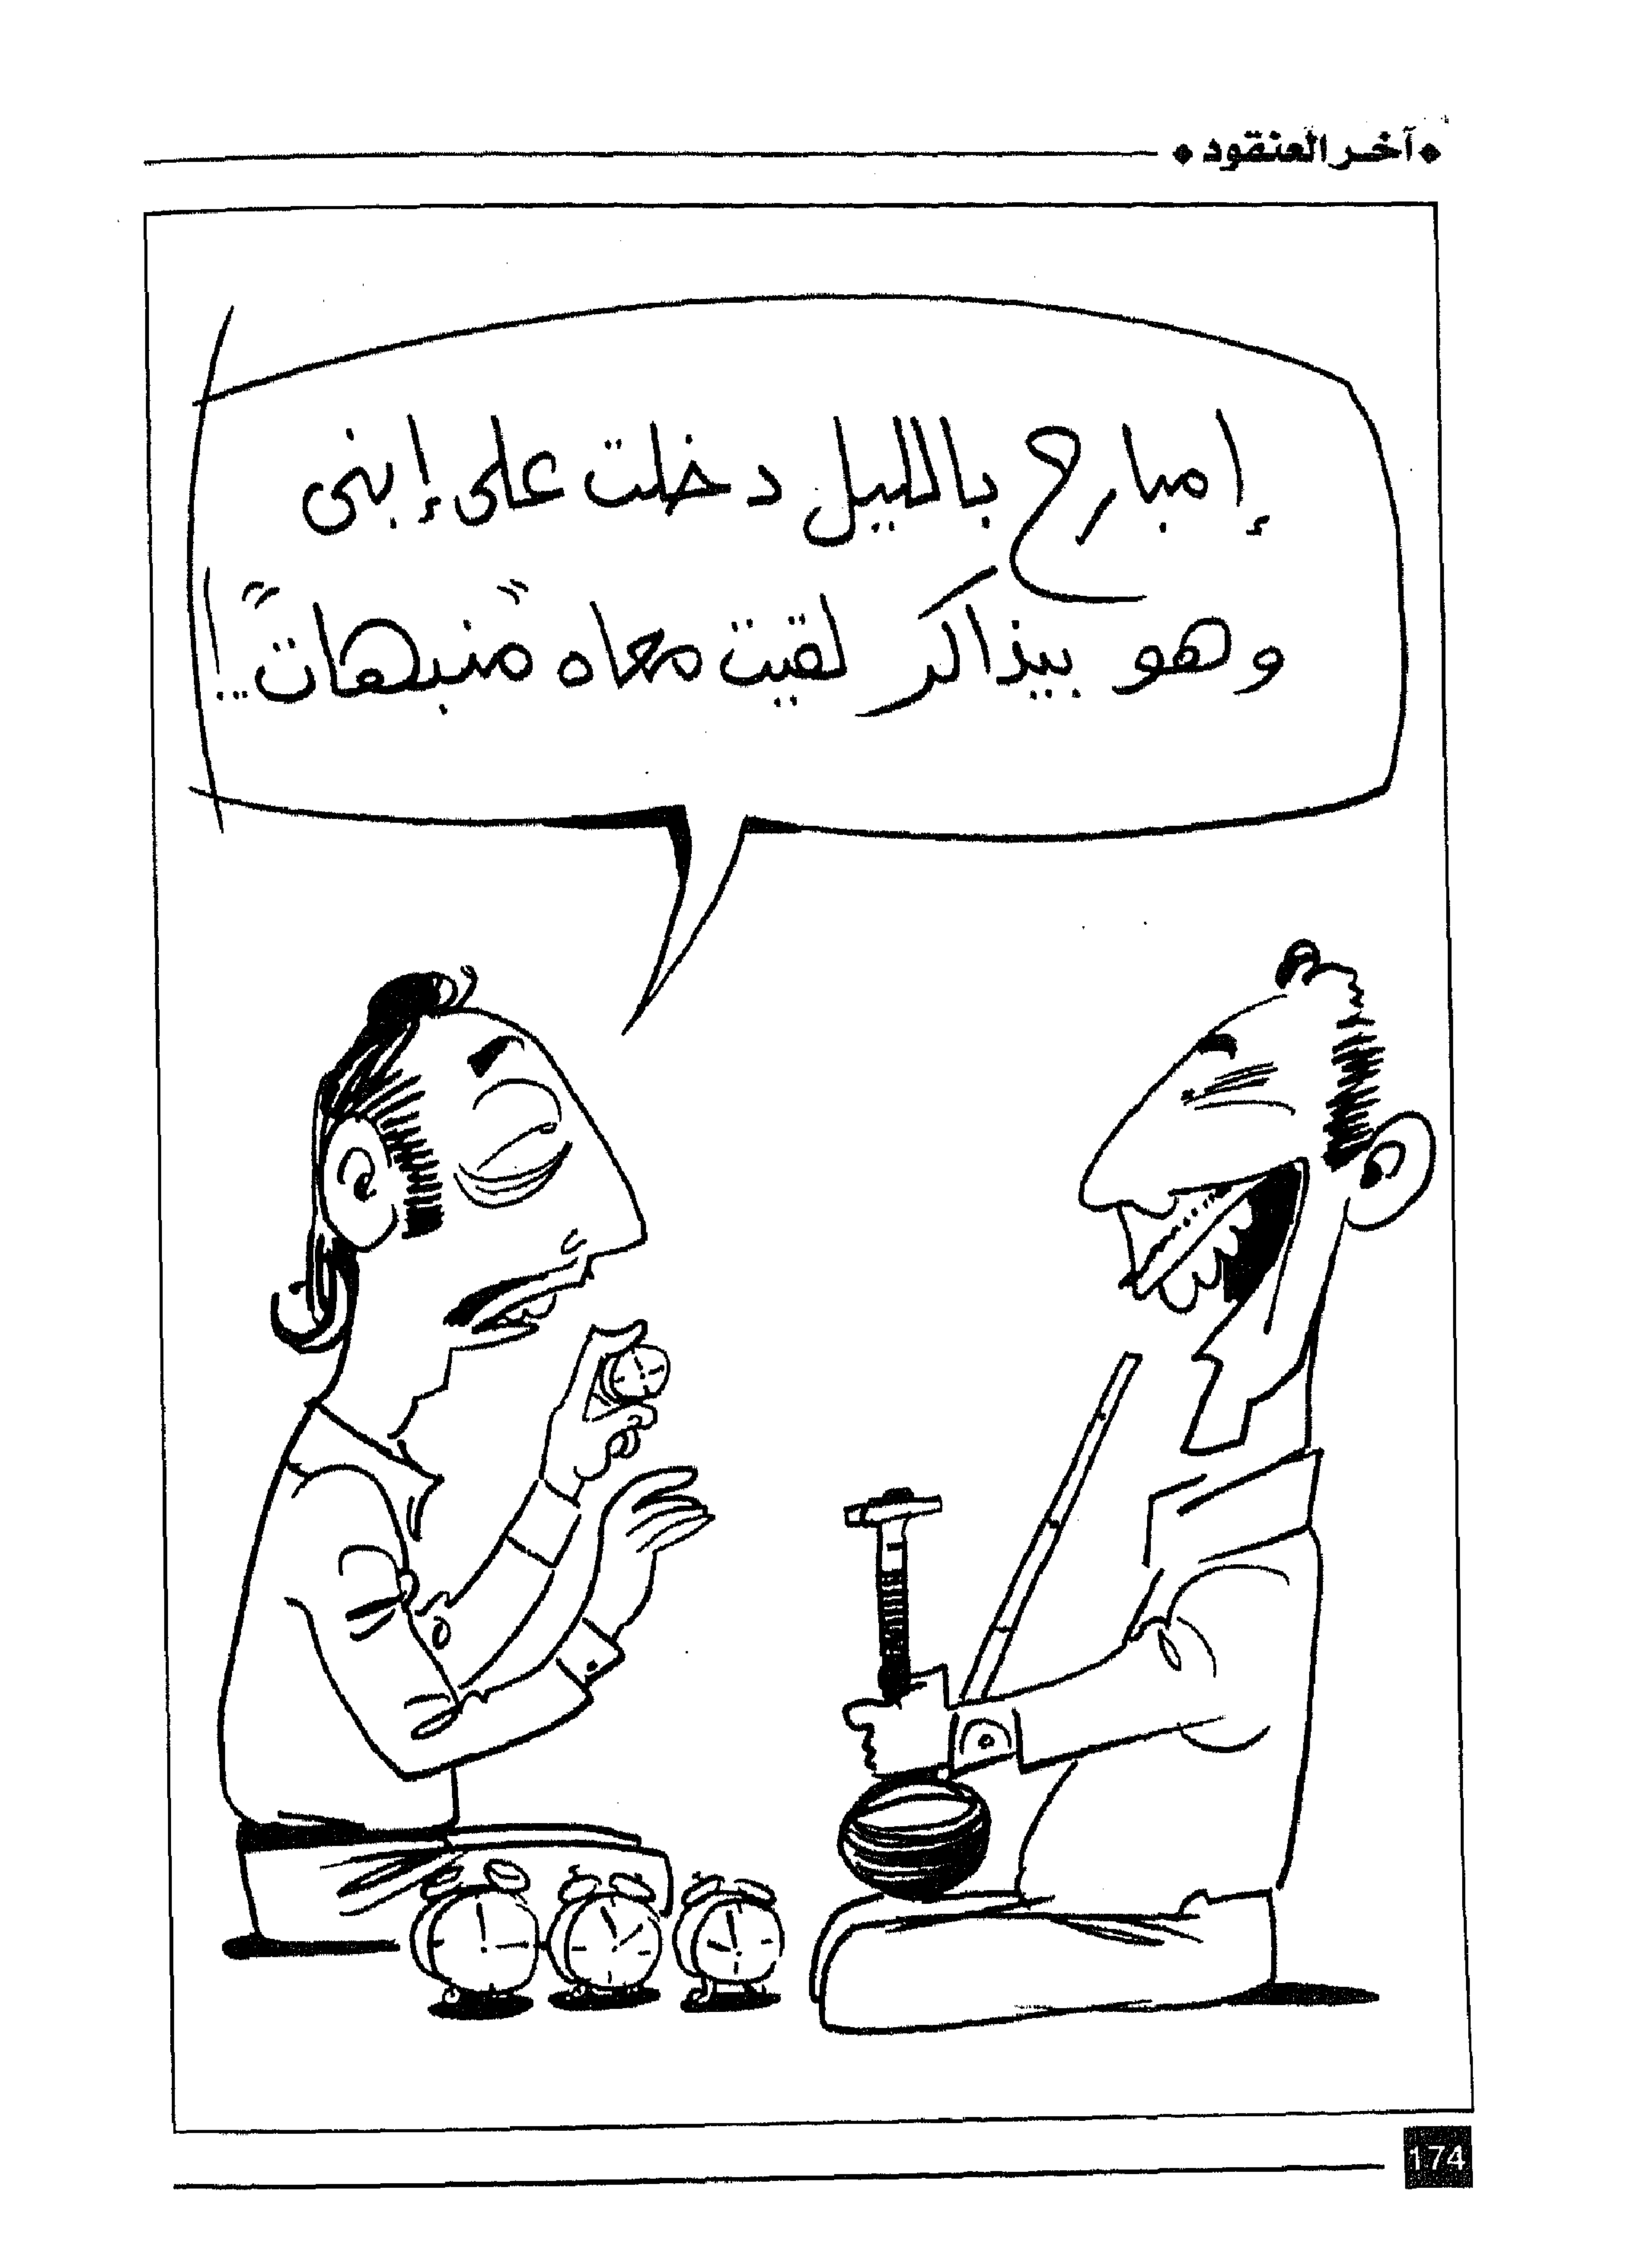 آخر العنقود
إمبارح بالليل دخلت على إبنى
وهو بيذاكر لقيت معاه "منبهات"..!
174